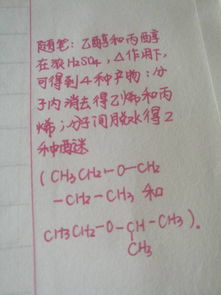 随笔:乙醇和丙醇
在浓H₂SO₄,△作用下,
可得到4种产物:分
子内消去得乙烯和丙
烯;分子间脱水得2
种两醚
(CH3CH2-O-CH2
-CH2-CH3 和
CH3CH2-O-CH-CH3)。
CH3